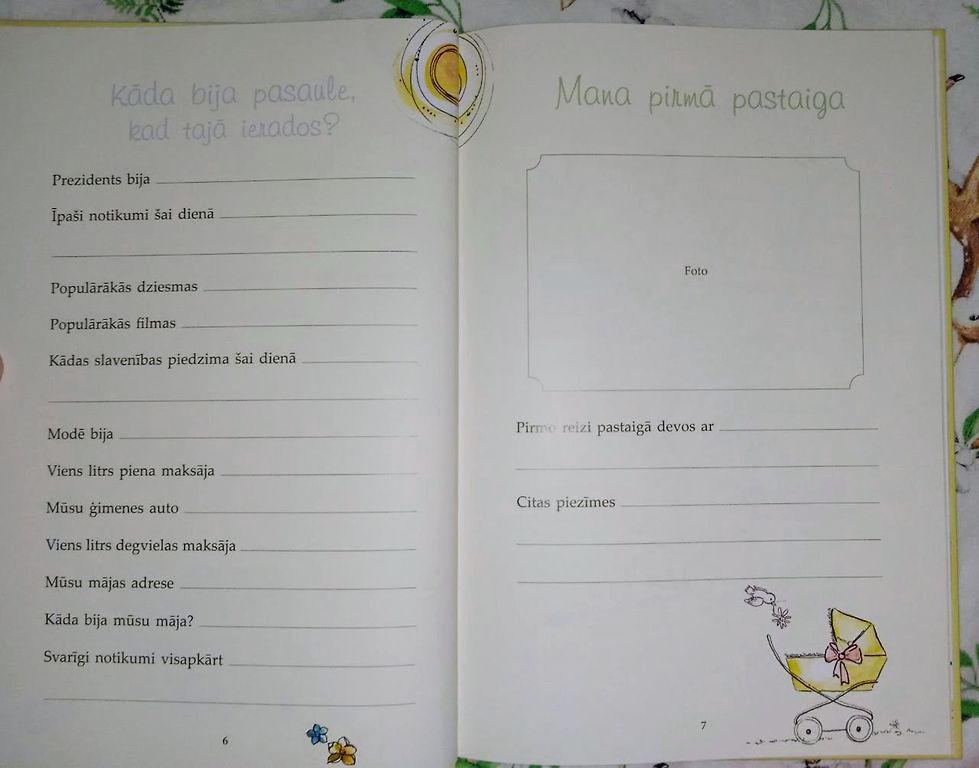 Kāda bija pasaule,
kad tajā ierados?
Prezidents bija
Īpaši notikumi šai dienā
Populārākās dziesmas
Populārākās filmas
Kādas slavenības piedzima šai dienā
Modē bija
Viens litrs piena maksāja
Mūsu ģimenes auto
Viens litrs degvielas maksāja
Mūsu mājas adrese
Kāda bija mūsu māja?
Svarīgi notikumi visapkārt
6
Mana pirmā pastaiga
Foto
Pirmo reizi pastaigā devos ar
Citas piezīmes
7